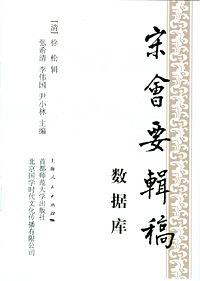 宋會要輯稿
数据库
[清] 徐松 辑
张希清 李伟国 尹小林 主编
上海人民出版社
首都师范大学出版社
北京国学时代文化传播有限公司